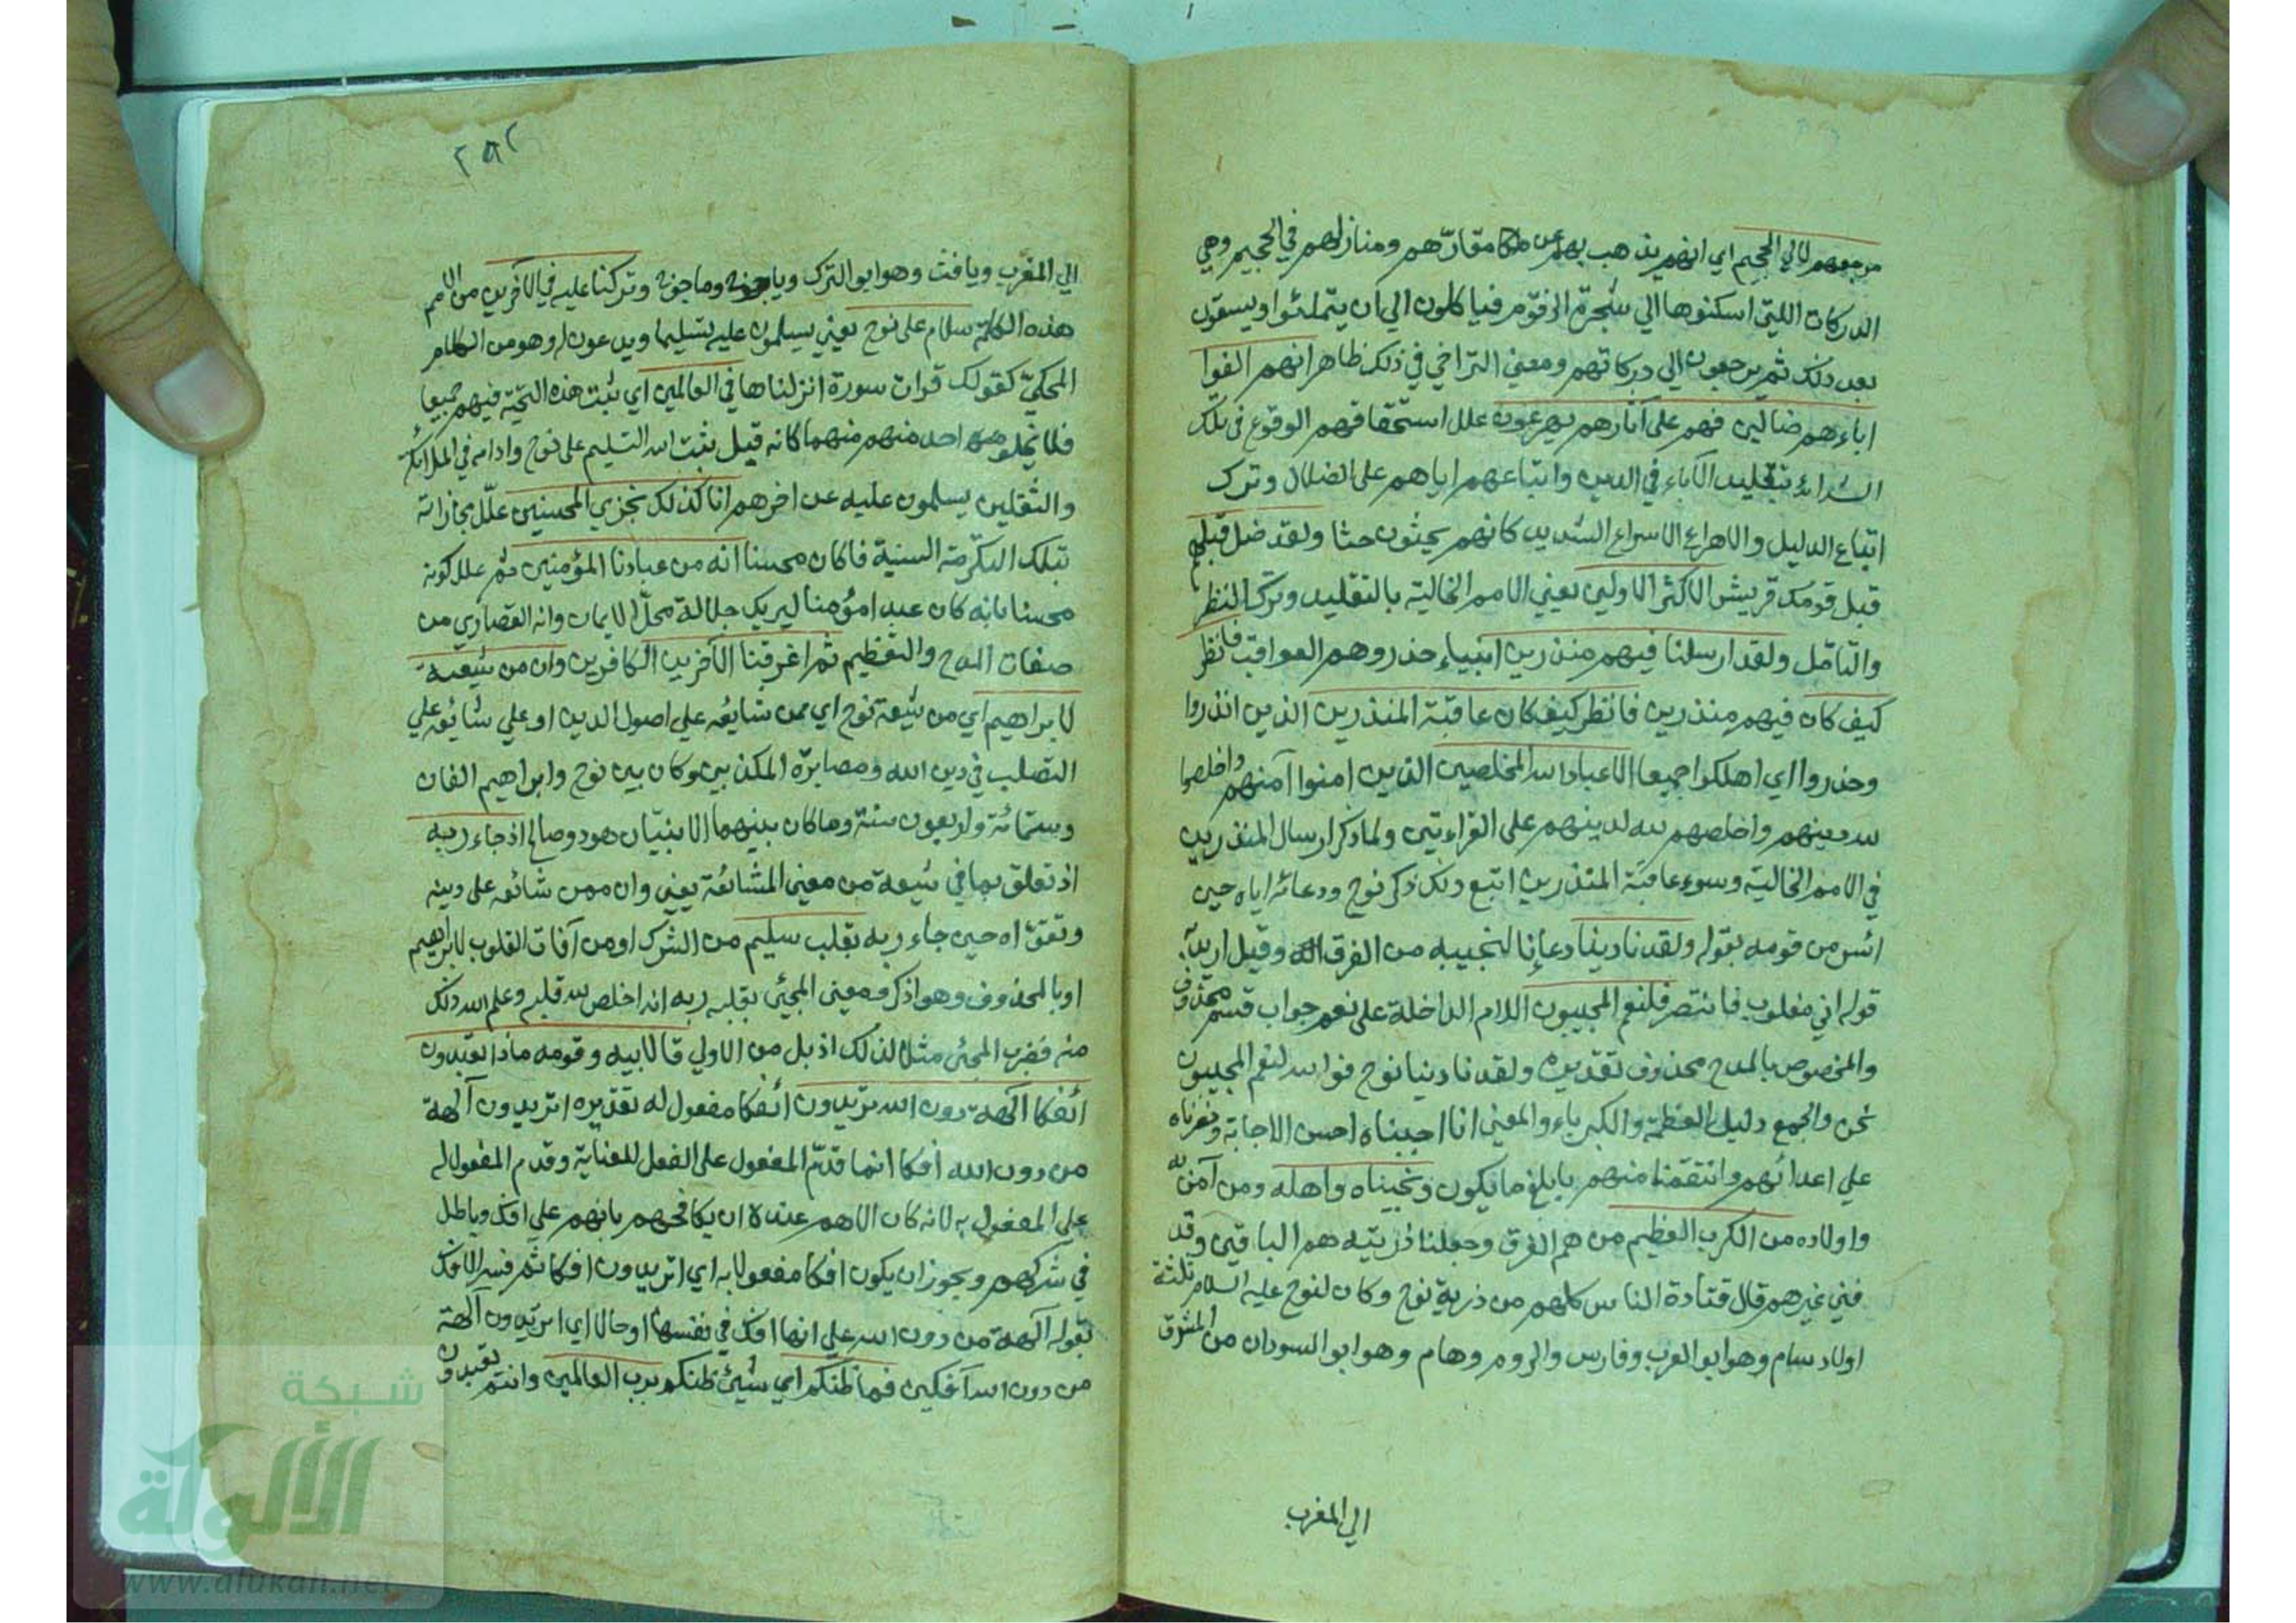 مرجعهم لالي الجحيم اي انهم يذهب بهم عن مقارّهم ومنازلهم في الجحيم وهي
الدركات اللتي اسكنوها الي شجرة الزقوم فياكلون الي ان يتملئوا ويسقون
بعد ذلك ثم يرجعون الي دركاتهم ومعني التراخي في ذلك ظاهر انهم الفوا
اباءهم ضالين فهم علي آثارهم يهرعون علل استحقاقهم الوقوع في تلك
الشدائد بتقليد الآباء في الدين واتباعهم اياهم علي الضلال وترك
اتباع الدليل والاهراع الاسراع الشديد كانهم يحثون حثا ولقد ضل قبلهم
قبل قومك قريش الاكثر الاولين يعني الامم الخالية بالتقليد وترك النظر
والتامل ولقد ارسلنا فيهم منذرين انبياء حذروهم العواقب فانظر
كيف كان فيهم منذرين فانظر كيف كان عاقبة المنذرين الذين انذروا
وحذروا اي اهلكوا جميعا الا عباد الله المخلصين الذين امنوا منهم واخلصوا
لله دينهم واخلصهم لله لدينهم علي القراءتين ولما ذكر ارسال المنذرين
في الامم الخالية وسوء عاقبة المنذرين اتبع ذلك ذكر نوح ودعائه اياه حين
ائس من قومه بقوله ولقد نادينا دعانا لنجيبه من الغرق وقيل اريد به
قوله اني مغلوب فانتصر فلنعم المجيبون اللام الداخلة علي نعم جواب قسم محذوف
والمخصوص بالمدح محذوف تقديره ولقد نادينا نوح فوالله لنعم المجيبون
نحن والجمع دليل العظمة والكبرياء والمعني انا اجبناه احسن الاجابة ونصرناه
علي اعدائهم وانتقمنا منهم بابلغ ما يكون ونجيناه واهله ومن آمن به
واولاده من الكرب العظيم من هم الغرق وجعلنا ذريته هم الباقين وقد
فني غيرهم قال قتادة الناس كلهم من ذرية نوح وكان لنوح عليه السلام ثلثة
اولاد سام وهو ابو العرب وفارس والروم وهام وهو ابو السودان من المشرق
الي المغرب
٢٨٢
الي المغرب ويافث وهو ابو الترك وياجوج وماجوج وتركنا عليه في الآخرين من الامم
هذه الكلمة سلام علي نوح يعني يسلمون عليه تسليما ويدعون له وهو من الكلام
المحكيّ كقولك قرات سورة انزلناها في العالمين اي ثبت هذه التحيّة فيهم جميعا
فلا يخلو احد منهم منهما كانه قيل ثبت الله التسليم علي نوح وادامه في الملائكة
والثقلين يسلمون عليه عن اخرهم انا كذلك نجزي المحسنين علّل مجازاته
بتلك التكرمة السنية فاكان محسنا انه من عبادنا المؤمنين ثم علل كونه
محسنا بانه كان عبدا مؤمنا ليريك جلالة محلّ الايمان وانه القصاري من
صفات المدح والتعظيم ثم اغرقنا الآخرين الكافرين وان من شيعته
لابراهيم اي من شيعة نوح اي ممن شايعه علي اصول الدين او علي شايعه علي
التصلب في دين الله ومصابرة المكذبين وكان بين نوح وابراهيم الفان
وستمائة واربعون سنة وما كان بينهما الا نبيّان هود وصالح اذ جاء ربه
اذ تعلق بما في شيعة من معني المشائعة يعني وان ممن شائعه علي دينه
وتقواه حين جاء ربه بقلب سليم من الشرك او من آفات القلوب لابراهيم
او بالمحذوف وهو اذكر ومعني المجئ بقلبه ربه انه اخلص لله قلبه وعلم الله ذلك
منه فضرب المجئ مثلا لذلك اذ بدل من الاولي قال لابيه وقومه ماذا تعبدون
ائفكا آلهة دون الله تريدون ائفكا مفعول له تقديره اتريدون آلهة
من دون الله افكا انما قدّم المفعول علي الفعل للعناية وقدم المفعول له
علي المفعول به لانه كان الاهم عنده ان يكافحهم بانهم علي افك وباطل
في شركهم ويجوز ان يكون افكا مفعولا به اي اتريدون افكا ثم فسر الافك
بقوله آلهة من دون الله علي انها افك في نفسها او حالا اي اتريدون آلهة
من دون الله آفكين فما ظنكم اي شيئ ظنكم برب العالمين وانتم تعبدون
شبكة
الألوكة
www.alukah.net